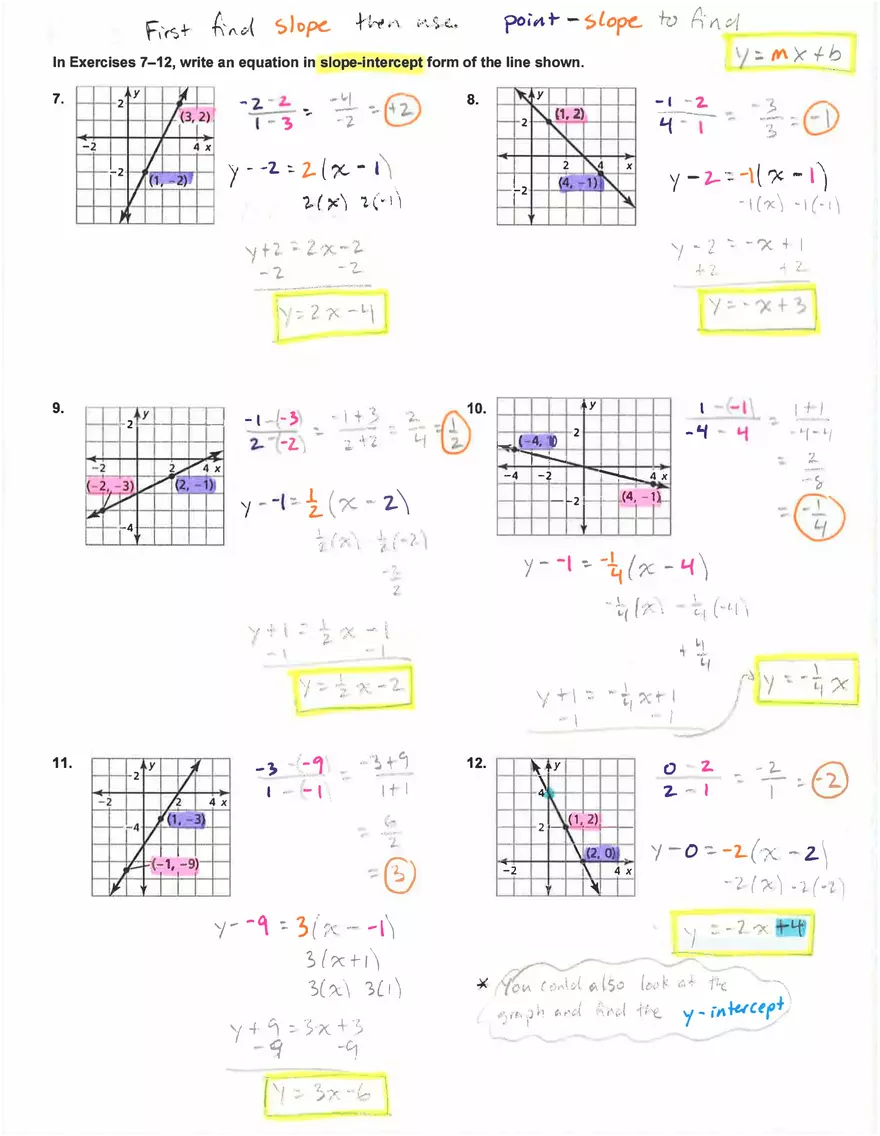 First find slope then use point-slope to find
y = mx + b
In Exercises 7–12, write an equation in slope-intercept form of the line shown.
7.
y
2
(3, 2)
-2
4 x
-2
(1, -2)
-2 - 2 / 1 - 3 = -4 / -2 = +2
y - -2 = 2(x - 1)
2(x) 2(-1)
y + 2 = 2x - 2
-2 -2
y = 2x - 4
8.
y
(1, 2)
2
2 4 x
-2
(4, -1)
-1 - 2 / 4 - 1 = -3 / 3 = -1
y - 2 = -1(x - 1)
-1(x) -1(-1)
y - 2 = -x + 1
+2 +2
y = -x + 3
9.
y
2
-2 2 4 x
(-2, -3)
(2, -1)
-4
-1 -(-3) / 2 -(-2) = -1 + 3 / 2 + 2 = 2 / 4 = 1/2
y - -1 = 1/2 (x - 2)
1/2(x) 1/2(-2)
-2/2
y + 1 = 1/2 x - 1
-1 -1
y = 1/2 x - 2
10.
y
(-4, 1)
2
-4 -2 4 x
-2
(4, -1)
1 -(-1) / -4 - 4 = 1 + 1 / -4 - 4
= 2 / -8
= -1/4
y - -1 = -1/4 (x - 4)
-1/4(x) -1/4(-4)
+ 4/4
y + 1 = -1/4 x + 1
-1 -1
y = -1/4 x
11.
y
2
-2 2 4 x
-4
(1, -3)
(-1, -9)
-3 -(-9) / 1 -(-1) = -3 + 9 / 1 + 1
= 6 / 2
= 3
y - -9 = 3(x - -1)
3(x+1)
3(x) 3(1)
y + 9 = 3x + 3
-9 -9
y = 3x - 6
12.
y
4
(1, 2)
2
(2, 0)
-2 4 x
0 - 2 / 2 - 1 = -2 / 1 = -2
y - 0 = -2(x - 2)
-2(x) -2(-2)
y = -2x + 4
* You could also look at the
graph and find the y-intercept